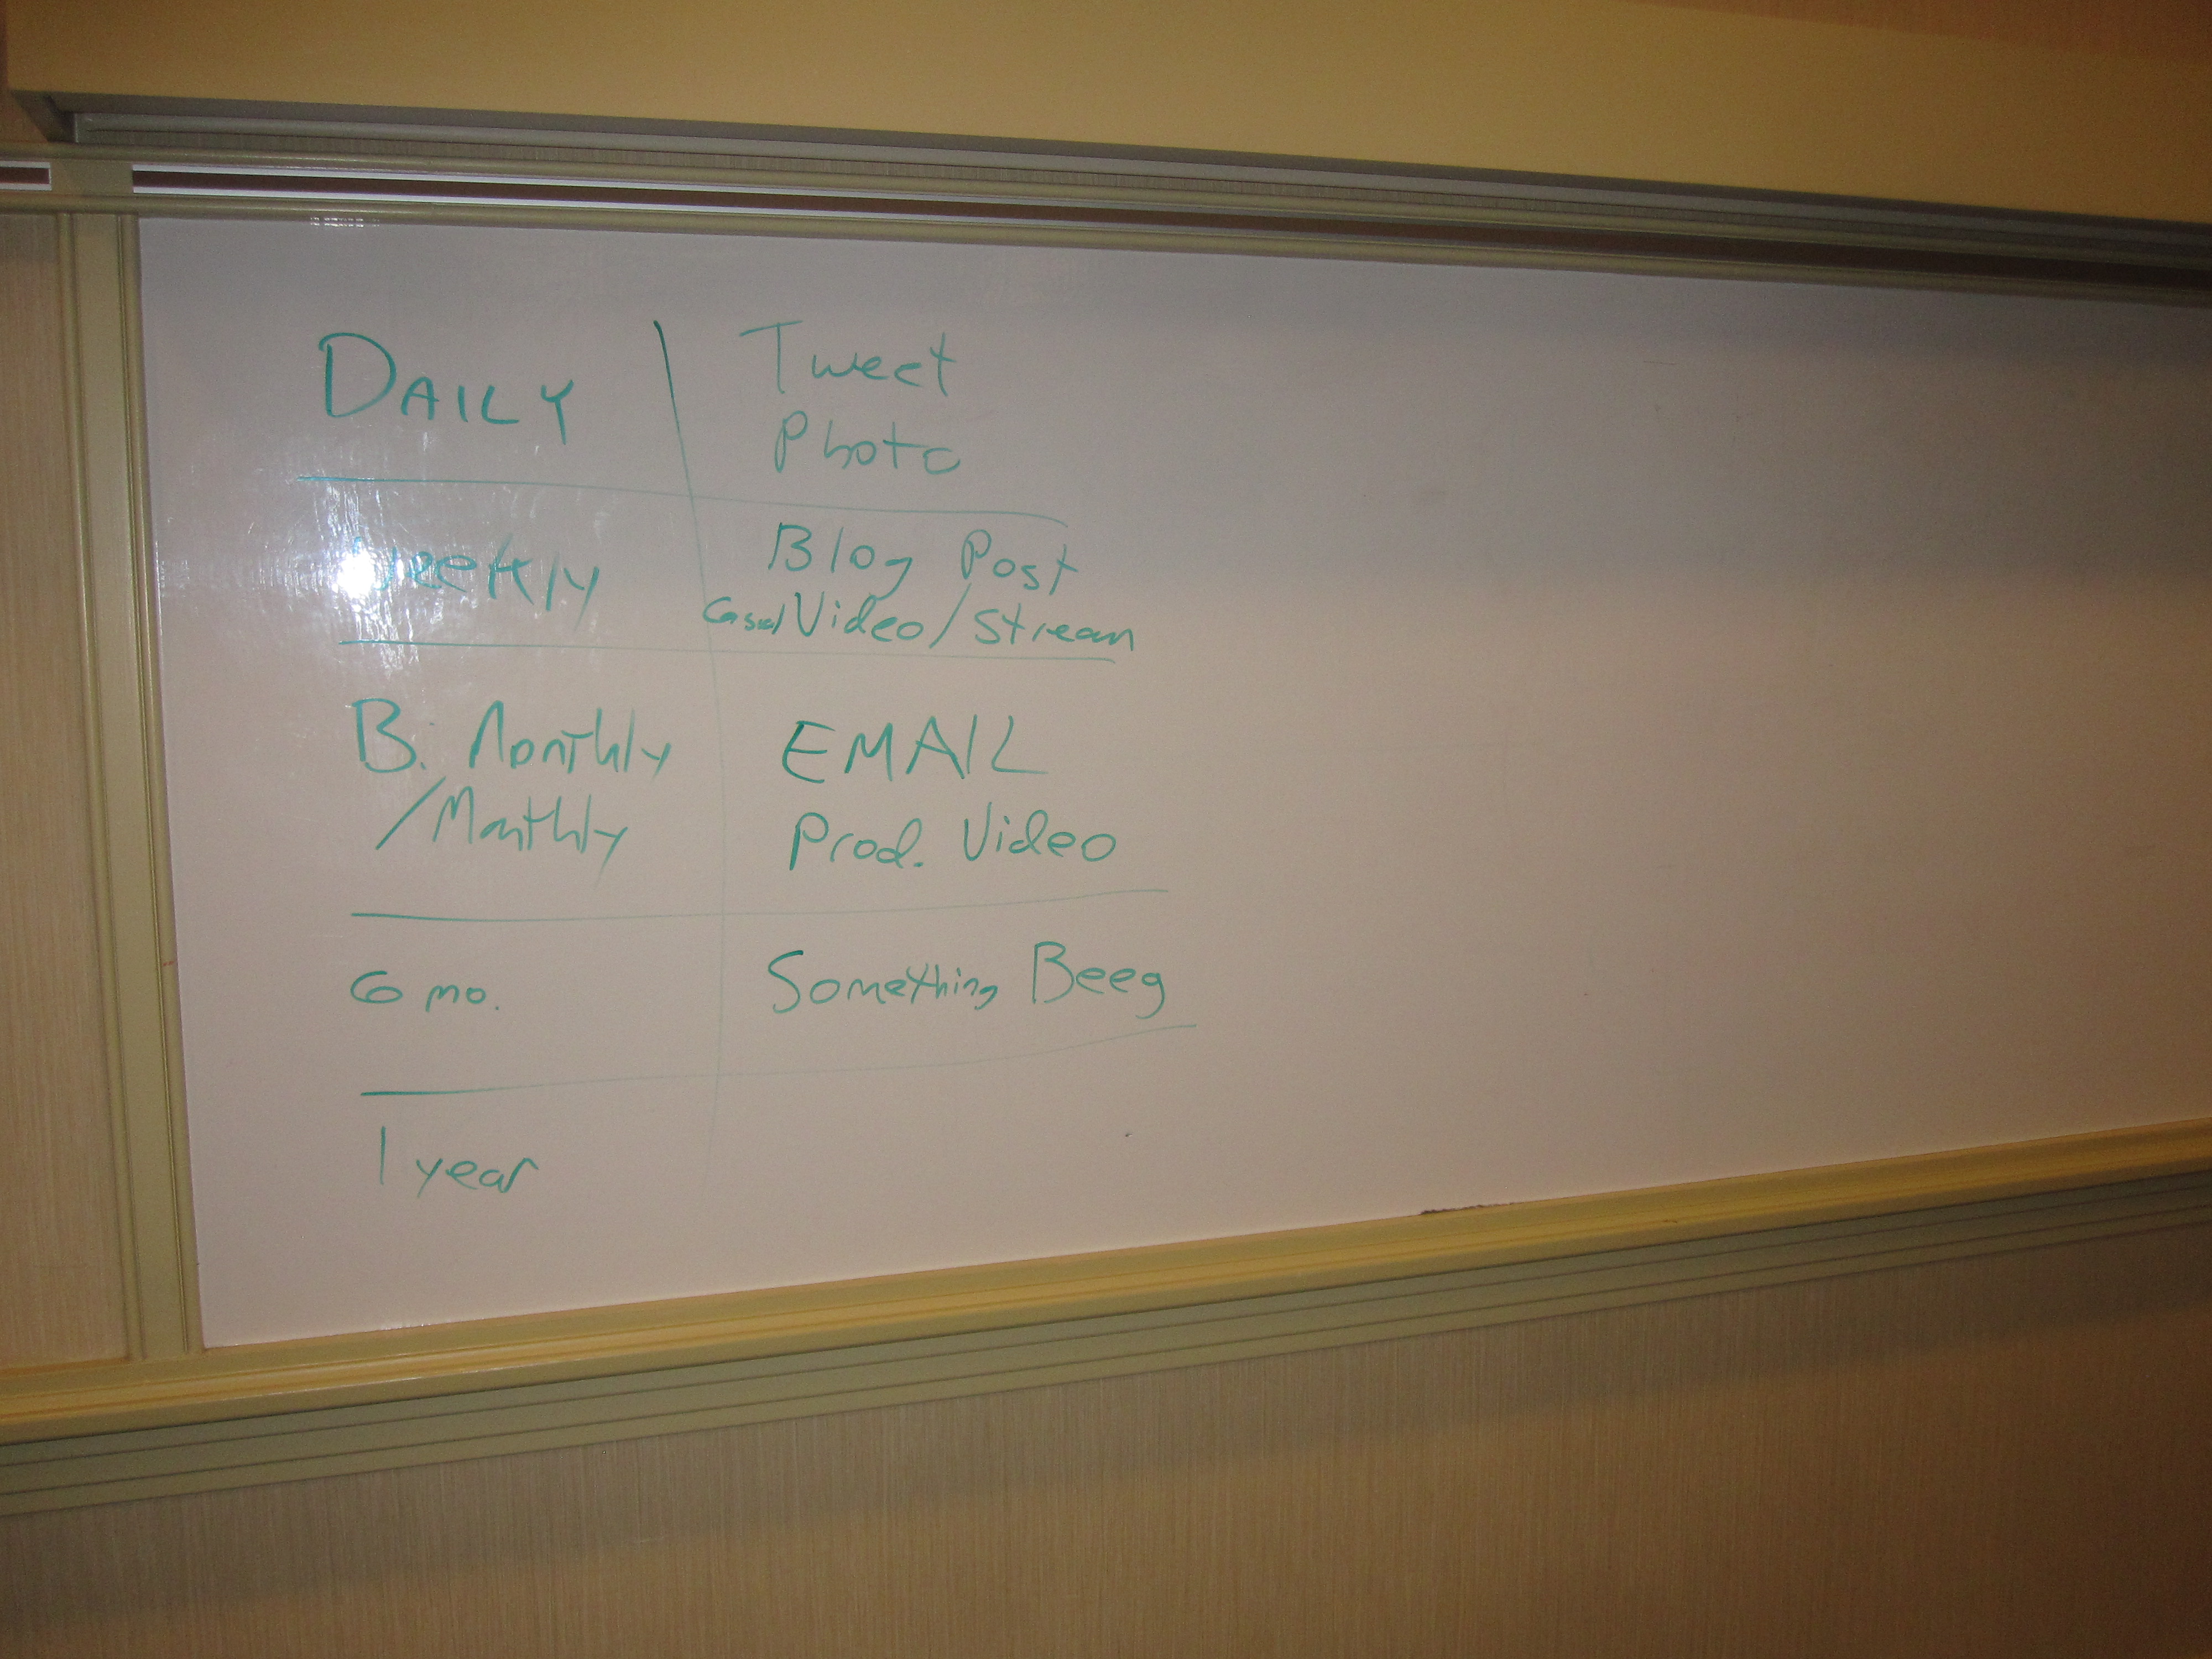 DAILY
Tweet
Photo
Weekly
Blog Post
Casual Video/Stream
B. Monthly
/Monthly
EMAIL
Prod. Video
6 mo.
Something Beeg
1 year